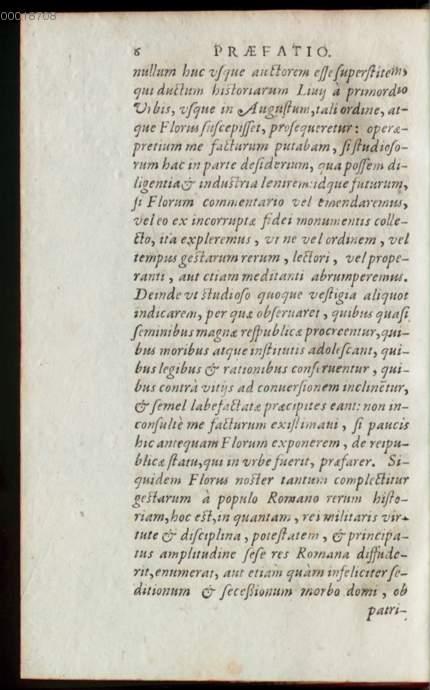 00018708
6 PRÆFATIO.
nullum huc vsque auctorem esse superstitem,
qui ductum historiarum Liuij à primordio
Vrbis, vsque in Augustum, tali ordine, at-
que Florus suscepisset, prosequeretur: operæ-
pretium me facturum putabam, si studioso-
rum hac in parte desiderium, qua possem di-
ligentia & industria lenirem: idque futurum,
si Florum commentario vel emendaremus,
vel eo ex incorruptæ fidei monumentis colle-
cto, ita expleremus, vt ne vel ordinem, vel
tempus gestarum rerum, lectori, vel prope-
ranti, aut etiam meditanti abrumperemus.
Deinde vt studioso quoque vestigia aliquot
indicarem, per quæ obseruaret, quibus quasi
seminibus magnæ respublicæ procreentur, qui-
bus moribus atque institutis adolescant, qui-
bus legibus & rationibus conseruentur, qui-
bus contrà vitijs ad conuersionem inclinētur,
& semel labefactatæ præcipites eant: non in-
consultè me facturum existimaui, si paucis
hic antequam Florum exponerem, de reipu-
blicæ statu, qui in vrbe fuerit, præfarer. Si-
quidem Florus noster tantum complectitur
gestarum à populo Romano rerum histo-
riam, hoc est, in quantam, rei militaris vir-
tute & disciplina, potestatem, & principa-
tus amplitudine sese res Romana diffude-
rit, enumerat, aut etiam quàm infeliciter se-
ditionum & secessionum morbo domi, ob
patri-